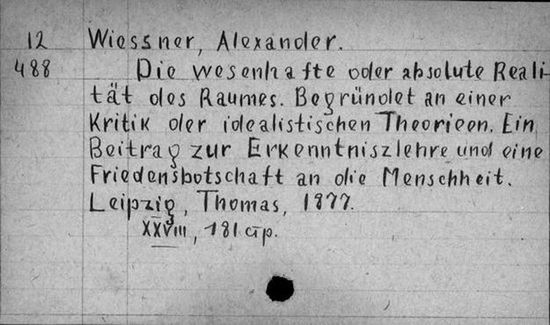 12 Wiessner, Alexander.
488 Die wesenhafte oder absolute Reali-
tät des Raumes. Begründet an einer
Kritik der idealistischen Theorieen. Ein
Beitrag zur Erkenntniszlehre und eine
Friedensbotschaft an die Menschheit.
Leipzig, Thomas, 1877.
XXVIII, 181 стр.